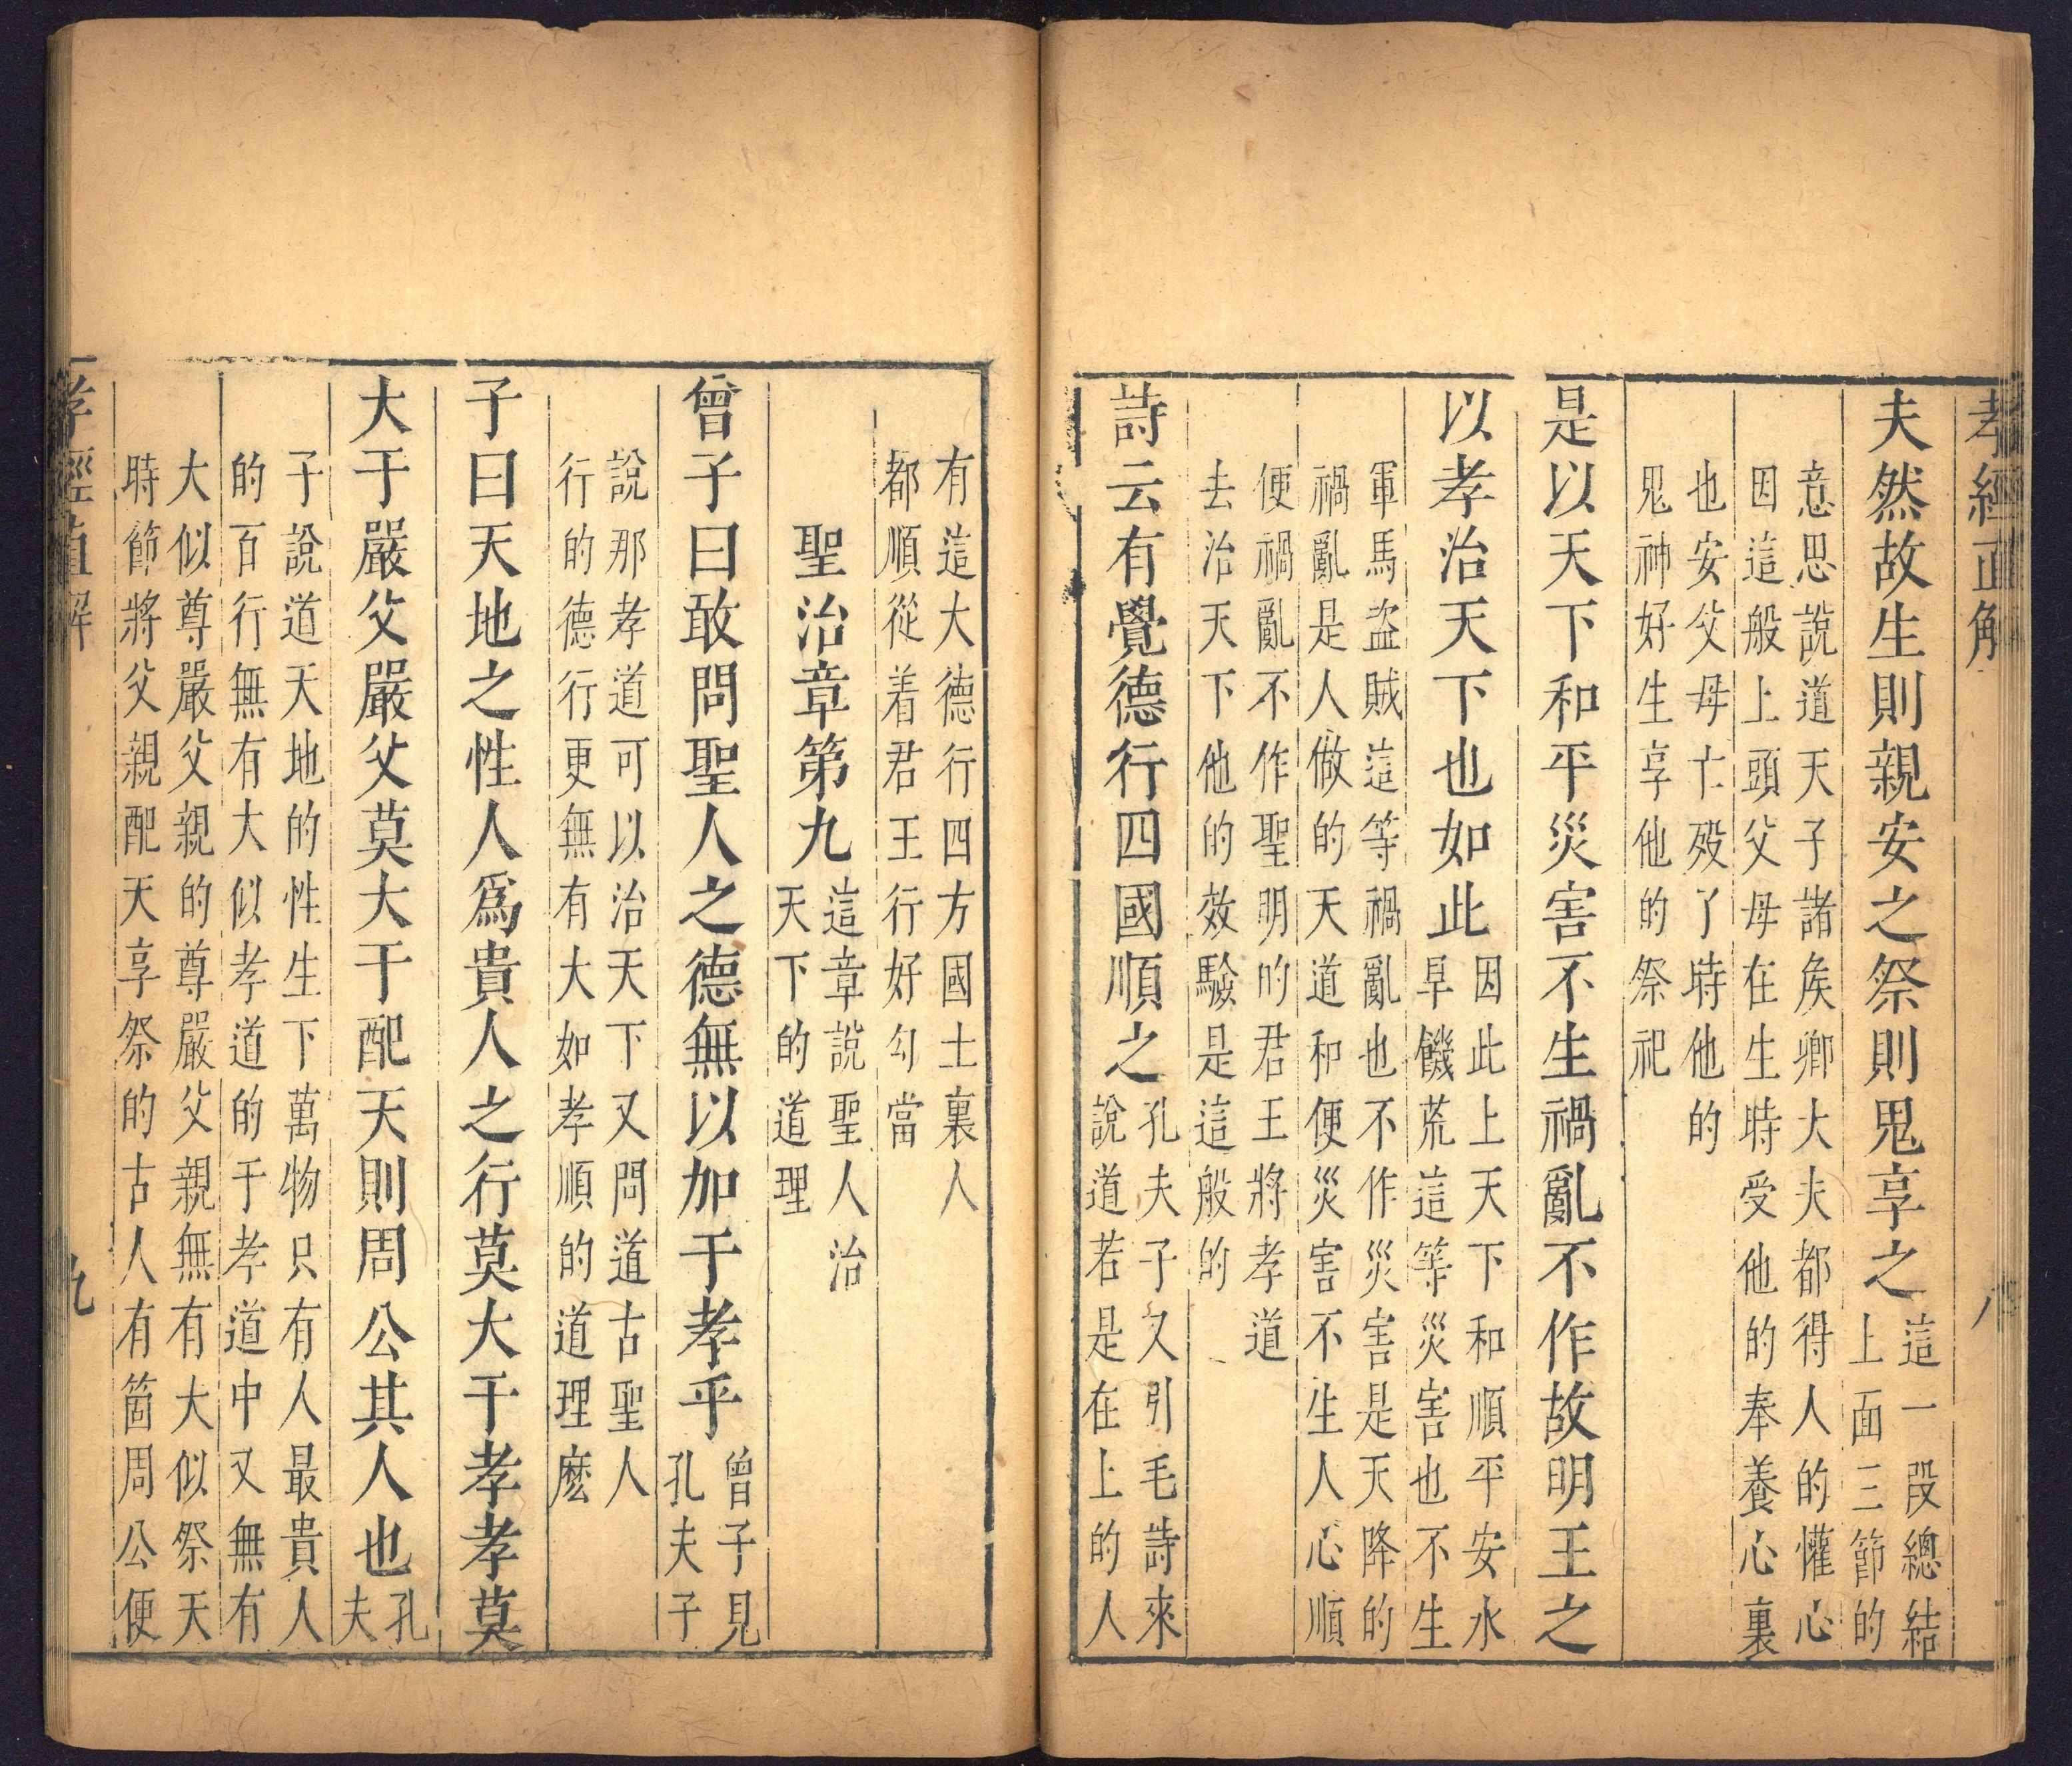 孝經直解
八
夫然故生則親安之祭則鬼享之這一段總結
上面三節的
意思說道天子諸矦卿大夫都得人的懽心
因這般上頭父母在生時受他的奉養心裏
也安父母亡殁了時他的
鬼神好生享他的祭祀
是以天下和平災害不生禍亂不作故明王之
以孝治天下也如此因此上天下和順平安水
旱饑荒這等災害也不生
軍馬盗賊這等禍亂也不作災害是天降的
禍亂是人做的天道和便災害不生人心順
便禍亂不作聖明的君王將孝道
去治天下他的效驗是這般的
詩云有覺德行四國順之孔夫子又引毛詩來
說道若是在上的人
有這大德行四方國土裏人
都順從着君王行好勾當
聖治章第九這章說聖人治
天下的道理
曾子曰敢問聖人之德無以加于孝乎曾子見
孔夫子
說那孝道可以治天下又問道古聖人
行的德行更無有大如孝順的道理麽
子曰天地之性人爲貴人之行莫大于孝孝莫
大于嚴父嚴父莫大于配天則周公其人也孔
夫
子說道天地的性生下萬物只有人最貴人
的百行無有大似孝道的于孝道中又無有
大似尊嚴父親的尊嚴父親無有大似祭天
時節將父親配天享祭的古人有箇周公便
孝經直解
九